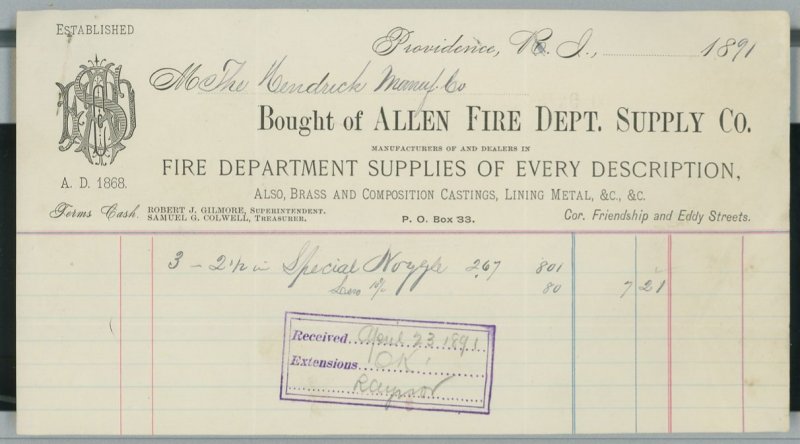 ESTABLISHED
Providence, R. I., 1891
M The Hendrick Manuf. Co
Bought of ALLEN FIRE DEPT. SUPPLY CO.
MANUFACTURERS OF AND DEALERS IN
FIRE DEPARTMENT SUPPLIES OF EVERY DESCRIPTION,
A. D. 1868.
ALSO, BRASS AND COMPOSITION CASTINGS, LINING METAL, &C., &C.
Terms Cash. ROBERT J. GILMORE, SUPERINTENDENT.
SAMUEL G. COLWELL, TREASURER.
P. O. Box 33.
Cor. Friendship and Eddy Streets.
3 - 2 1/2 in Special Nozzle 267 801
Less 10% 80 7 21
Received April 23 1891
Extensions OK
Raynor